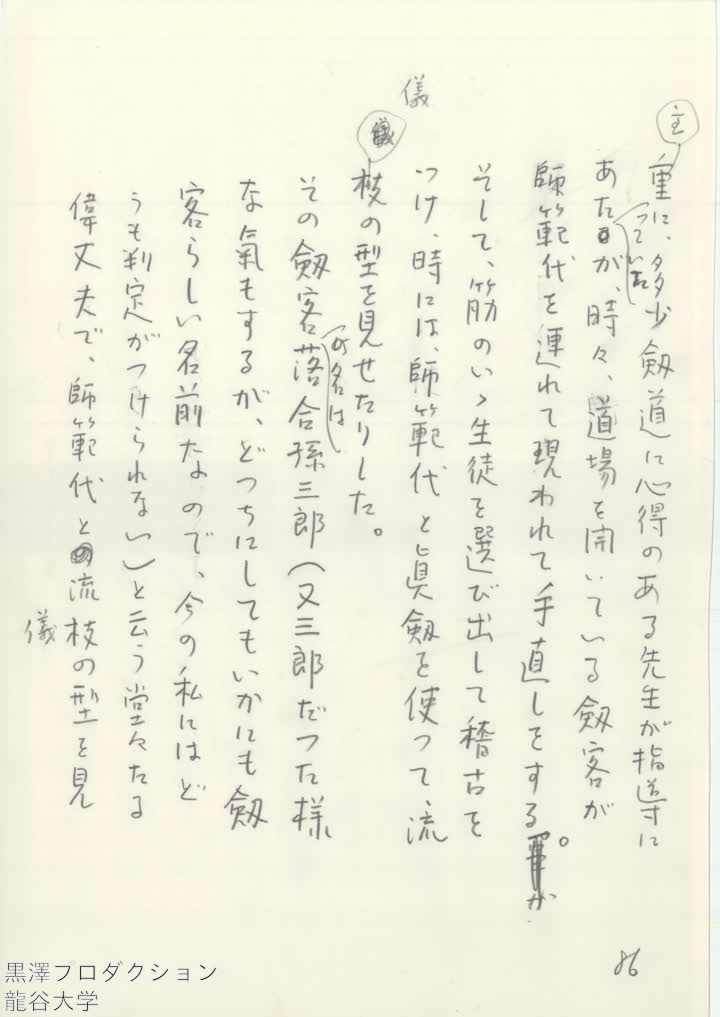 主
重に、多少劔道に心得のある先生が指導に
っていた
あたるが、時々、道場を開いている劔客が
師範代を連れて現われて手直しをする。
そして、筋のいゝ生徒を選び出して稽古を
つけ、時には、師範代と眞劔を使って、流
儀
儀
枝の型を見せたりした。
その劔客落合孫三郎(又三郎だった様
の名は
な氣もするが、どっちにしてもいかにも劔
客らしい名前なので、今の私にはど
うも判定がつけられない)と云う堂々たる
偉丈夫で、師範代と流枝の型を見
儀
86
黒澤プロダクション
龍谷大学